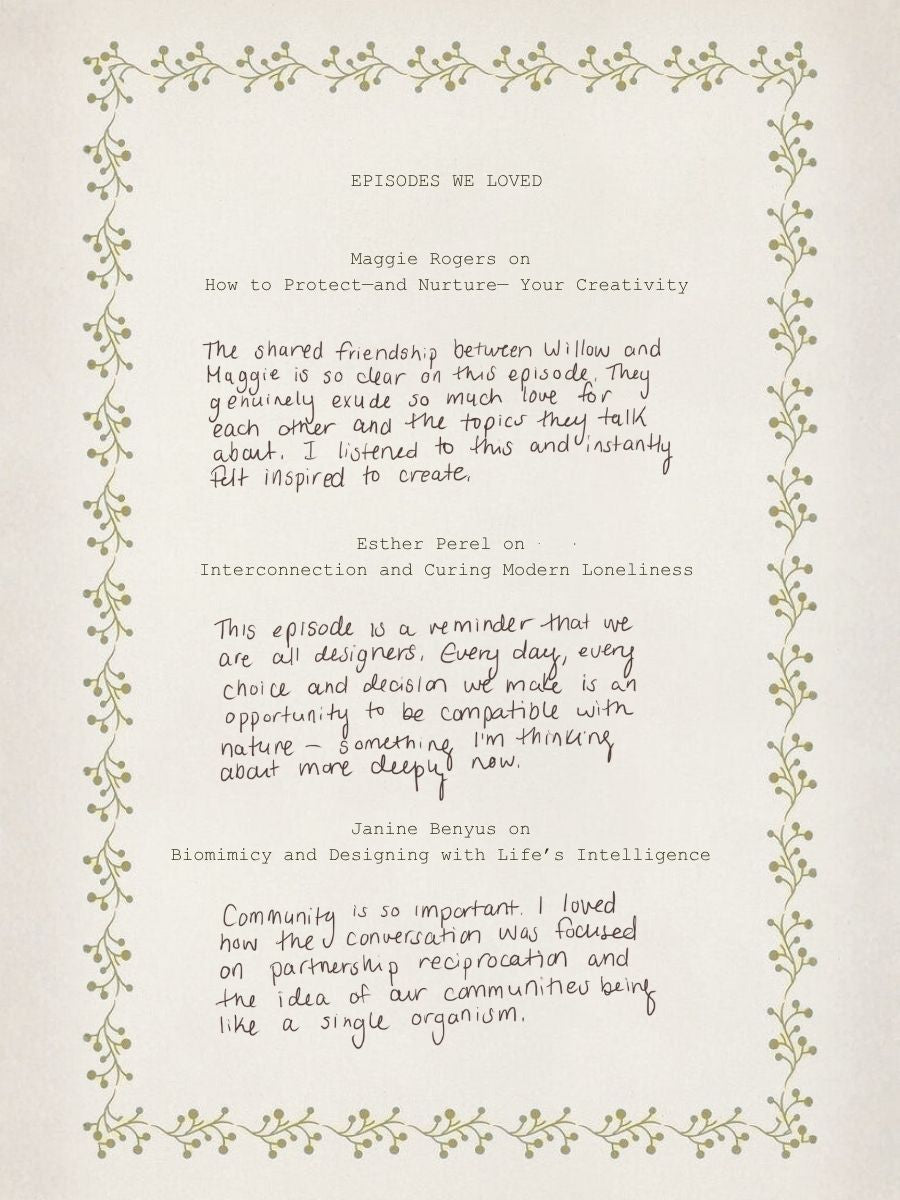 EPISODES WE LOVED
Maggie Rogers on
How to Protect—and Nurture— Your Creativity
The shared friendship between Willow and
Maggie is so clear on this episode. They
genuinely exude so much love for
each other and the topics they talk
about. I listened to this and instantly
felt inspired to create.
Esther Perel on
Interconnection and Curing Modern Loneliness
This episode is a reminder that we
are all designers. Every day, every
choice and decision we make is an
opportunity to be compatible with
nature — something I'm thinking
about more deeply now.
Janine Benyus on
Biomimicy and Designing with Life’s Intelligence
Community is so important. I loved
how the conversation was focused
on partnership reciprocation and
the idea of our communities being
like a single organism.